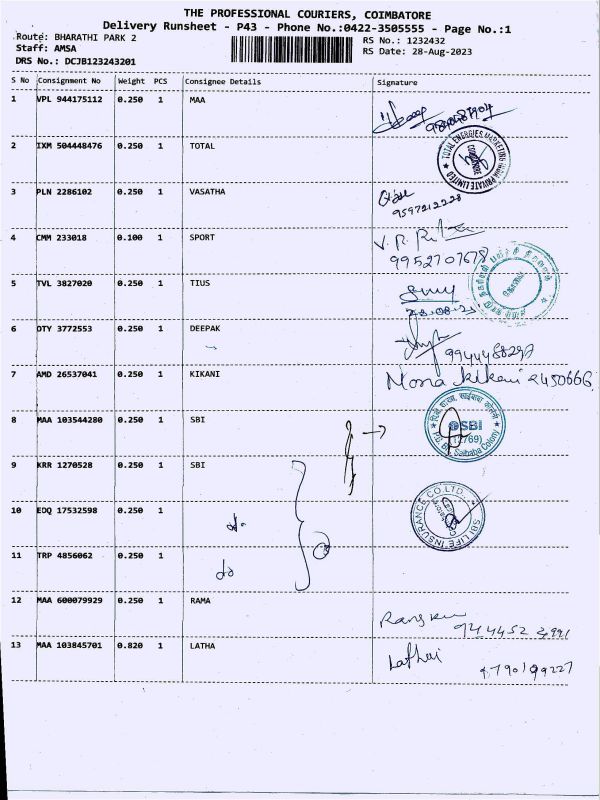 THE PROFESSIONAL COURIERS, COIMBATORE
Delivery Runsheet - P43 - Phone No.:0422-3505555 - Page No.:1
Route: BHARATHI PARK 2
Staff: AMSA
DRS No.: DCJB123243201
RS No.: 1232432
RS Date: 28-Aug-2023
S No Consignment No Weight PCS Consignee Details Signature
1 VPL 944175112 0.250 1 MAA
2 IXM 504448476 0.250 1 TOTAL
TOTAL ENERGIES MARKETING INDIA PRIVATE LIMITED
COIMBATORE
3 PLN 2286102 0.250 1 VASATHA
9597212228
4 CMM 233018 0.100 1 SPORT
9952707678
5 TVL 3827020 0.250 1 TIUS
28-08-23
6 OTY 3772553 0.250 1 DEEPAK
7 AMD 26537041 0.250 1 KIKANI
Mona kikani 2450666
8 MAA 103544280 0.250 1 SBI
SBI
P.G. Br. Saibaba Colony
9 KRR 1270528 0.250 1 SBI
10 EDQ 17532598 0.250 1
do
SBI LIFE INSURANCE CO.LTD.
11 TRP 4856062 0.250 1
do
12 MAA 600079929 0.250 1 RAMA
13 MAA 103845701 0.820 1 LATHA
8790199227